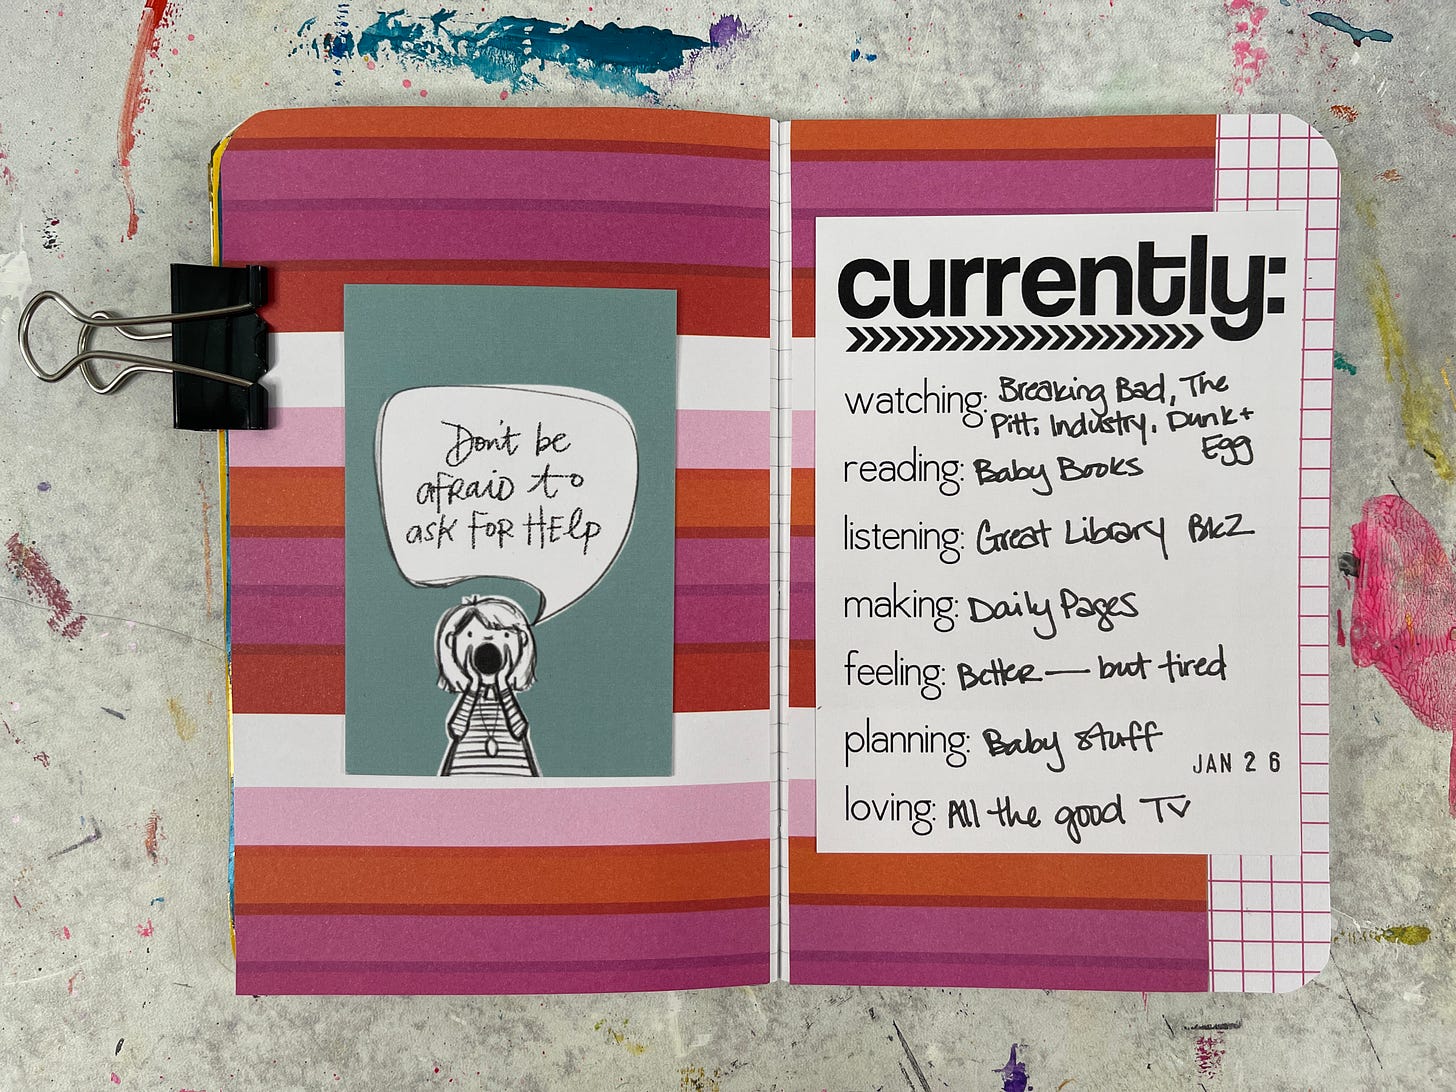 Don't be
afraid to
ask FOR HElp
currently:
watching: Breaking Bad, The
Pitt, Industry, Dunk +
Egg
reading: Baby Books
listening: Great Library Bk2
making: Daily Pages
feeling: Better — but tired
planning: Baby stuff
JAN 26
loving: All the good TV